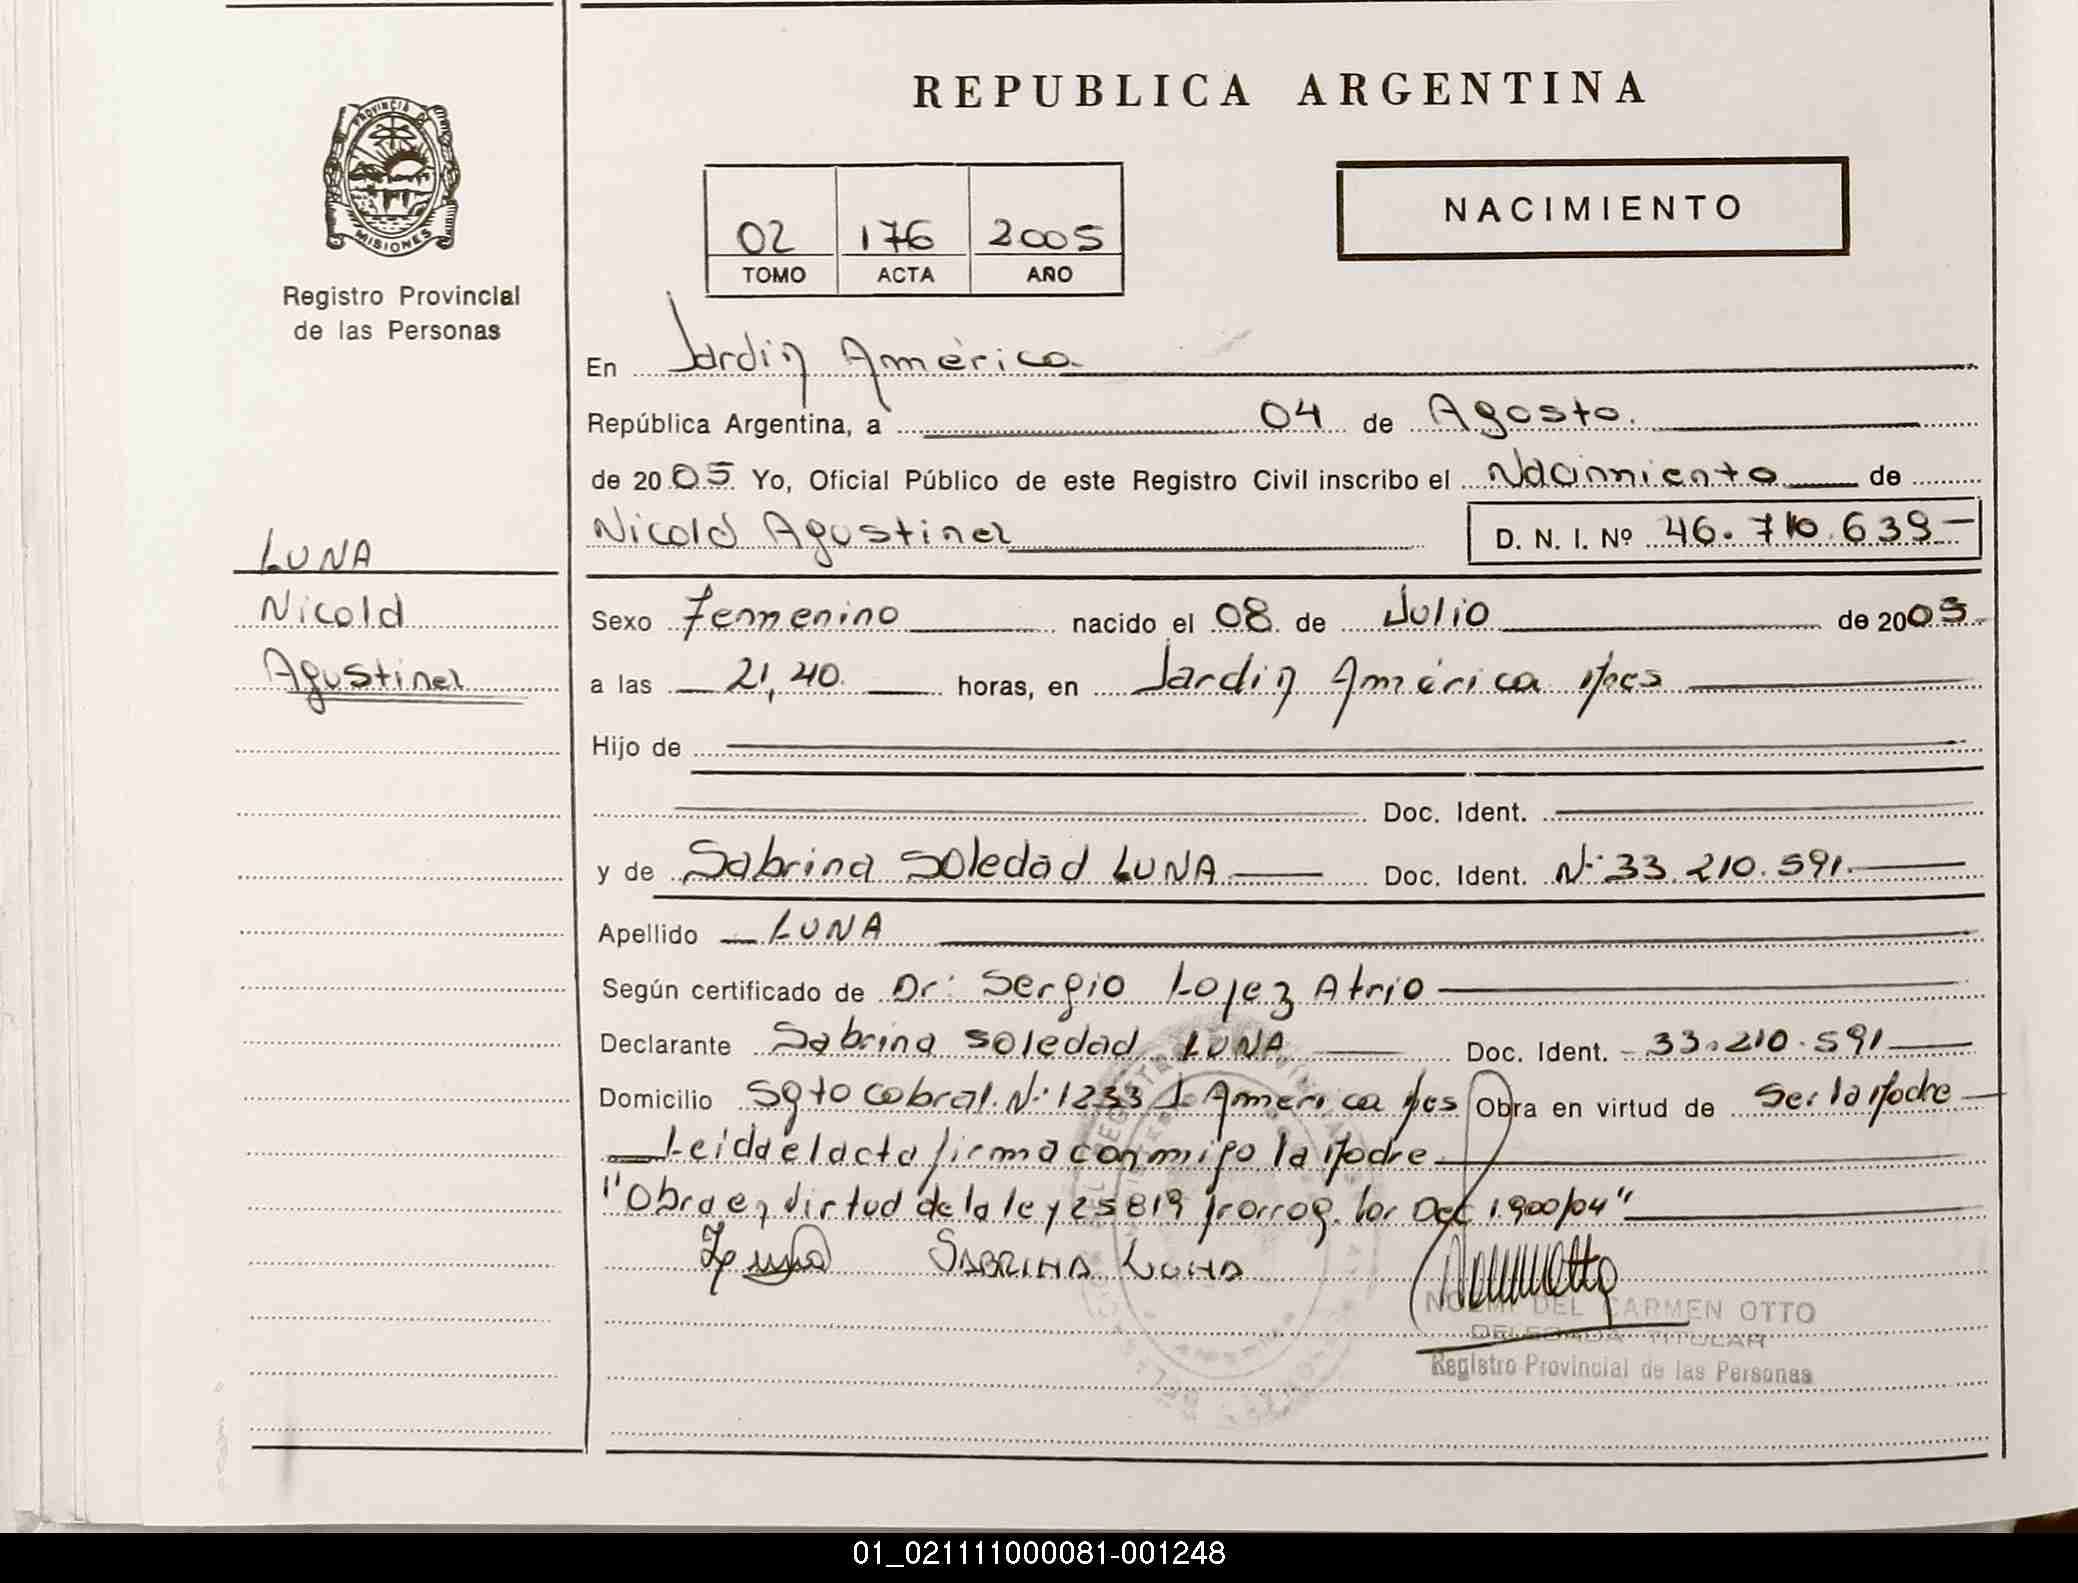 REPUBLICA ARGENTINA
PROVINCIA DE
MISIONES
Registro Provincial
de las Personas
02 176 2005
TOMO ACTA AÑO
NACIMIENTO
En Jardín América
República Argentina, a 04 de Agosto.
de 2005 Yo, Oficial Público de este Registro Civil inscribo el Nacimiento de
Nicold Agustinel
D. N. I. Nº 46.710.639
LUNA
Nicold
Agustinel
Sexo Femenino nacido el 08 de Julio de 2005
a las 21,40. horas, en Jardín América Mnes
Hijo de
Doc. Ident.
y de Sabrina Soledad LUNA Doc. Ident. Nº 33.210.591.
Apellido LUNA
Según certificado de Dr: Sergio Lopez Atrio
Declarante Sabrina Soledad LUNA Doc. Ident. 33.210.591
Domicilio Sgto Cobral. Nº 1233 J. America Mnes Obra en virtud de Ser la Madre
Leida el acta firma conmigo la Madre
"Obra en virtud de la ley 25819 prorrog. por Dec 1.900/04"
SABRINA LUNA
NOEMI DEL CARMEN OTTO
DELEGADA TITULAR
Registro Provincial de las Personas
01_021111000081-001248